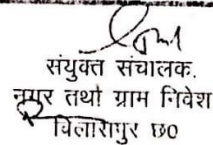 संयुक्त संचालक.
नगर तथा ग्राम निवेश
बिलासपुर छ0